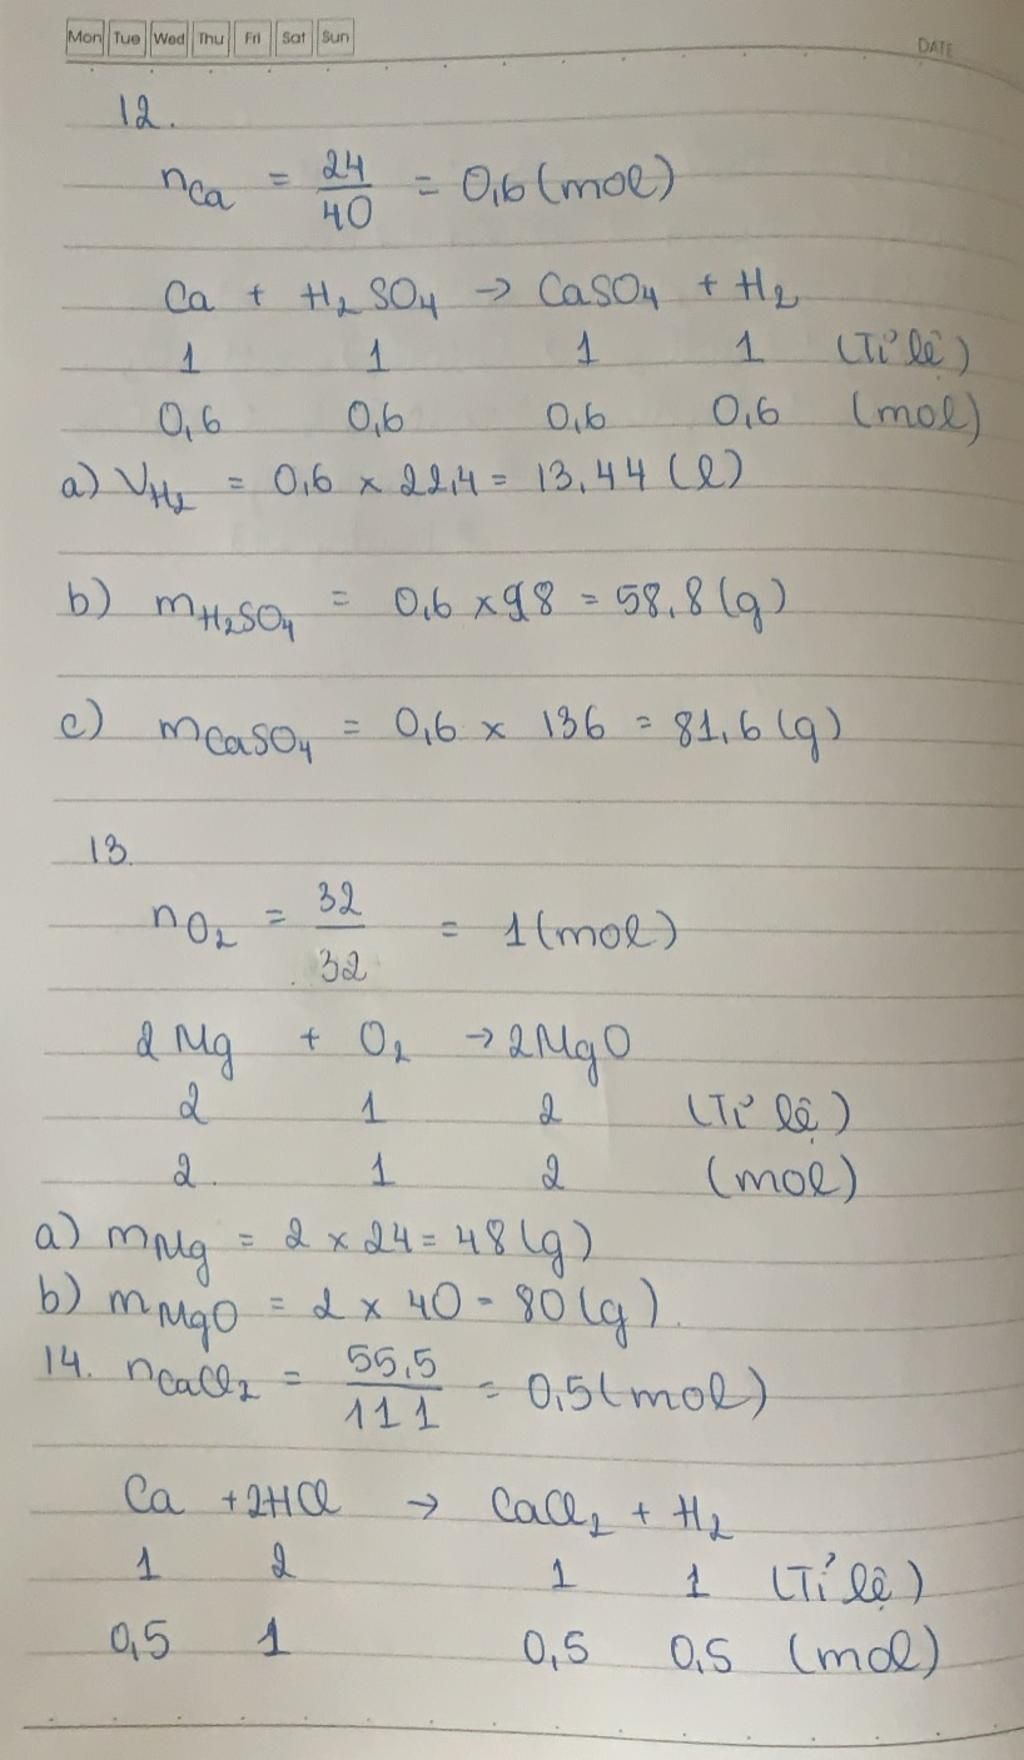 Mon Tue Wed Thu Fri Sat Sun
DATE
12.
n_Ca = 24/40 = 0,6 (mol)
Ca + H₂SO₄ → CaSO₄ + H₂
1 1 1 1 (Tỉ lệ)
0,6 0,6 0,6 0,6 (mol)
a) V_H₂ = 0,6 × 22,4 = 13,44 (l)
b) m_H₂SO₄ = 0,6 × 98 = 58,8 (g)
c) m_CaSO₄ = 0,6 × 136 = 81,6 (g)
13.
n_O₂ = 32/32 = 1 (mol)
2Mg + O₂ → 2MgO
2 1 2 (Tỉ lệ)
2 1 2 (mol)
a) m_Mg = 2 × 24 = 48 (g)
b) m_MgO = 2 × 40 = 80 (g).
14. n_CaCl₂ = 55,5/111 = 0,5 (mol)
Ca + 2HCl → CaCl₂ + H₂
1 2 1 1 (Tỉ lệ)
0,5 1 0,5 0,5 (mol)